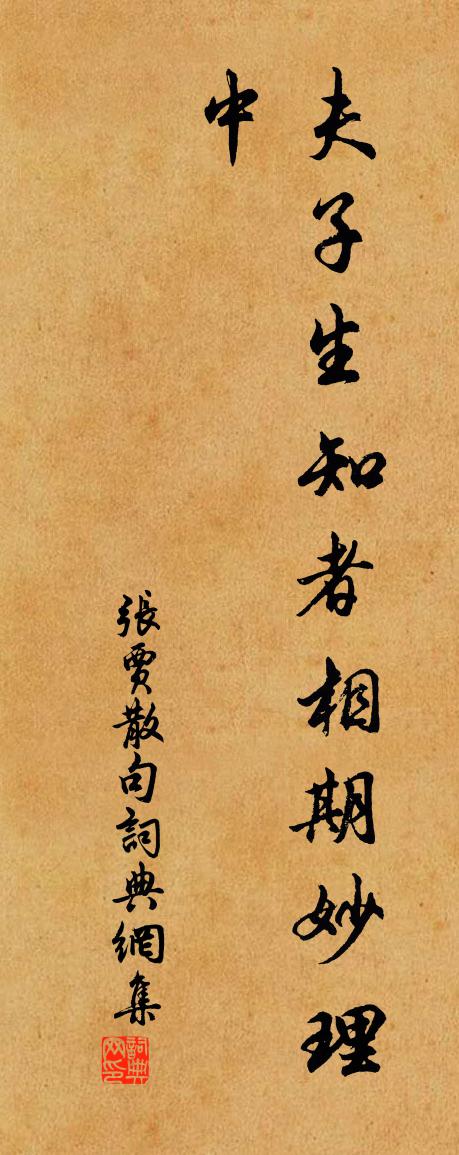 夫子生知者相期妙理
中
張賈散句詞典網集
詞典
网印